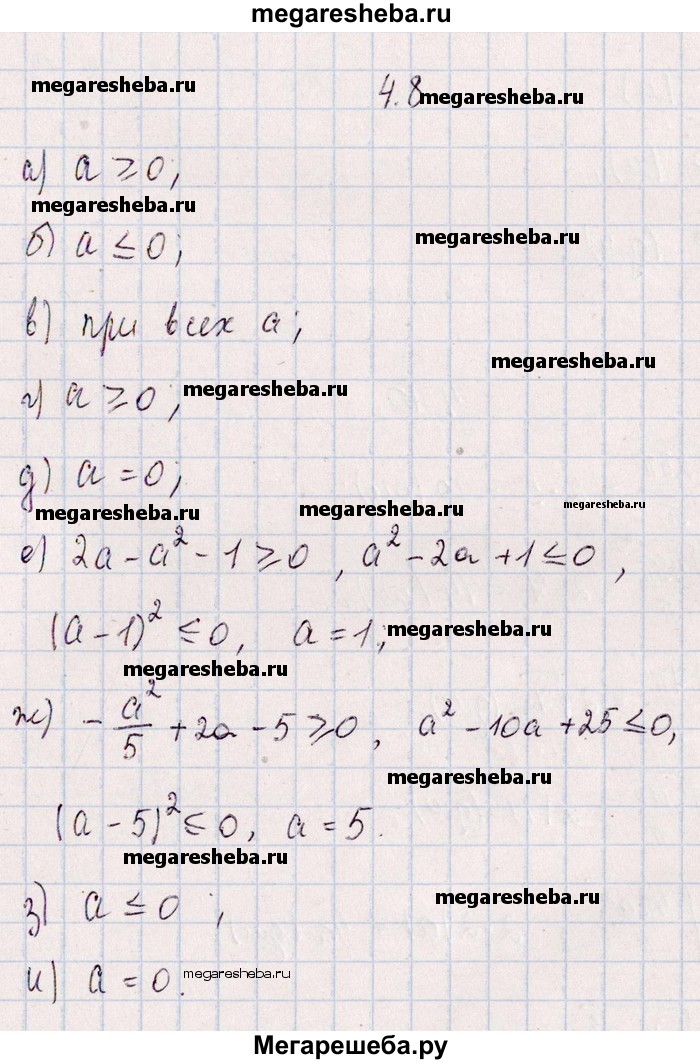 megaresheba.ru
megaresheba.ru
4.8 megaresheba.ru
а) a ⩾ 0;
megaresheba.ru
б) a ≤ 0;
megaresheba.ru
в) при всех a;
megaresheba.ru
г) a ⩾ 0;
megaresheba.ru
д) a = 0;
megaresheba.ru
megaresheba.ru
megaresheba.ru
е) 2a - a² - 1 ⩾ 0, a² - 2a + 1 ≤ 0,
(a - 1)² ≤ 0, a = 1;
megaresheba.ru
megaresheba.ru
ж) - a²/5 + 2a - 5 ⩾ 0, a² - 10a + 25 ≤ 0,
megaresheba.ru
(a - 5)² ≤ 0, a = 5.
megaresheba.ru
з) a ≤ 0;
megaresheba.ru
и) a = 0.
megaresheba.ru
Мегарешеба.ру